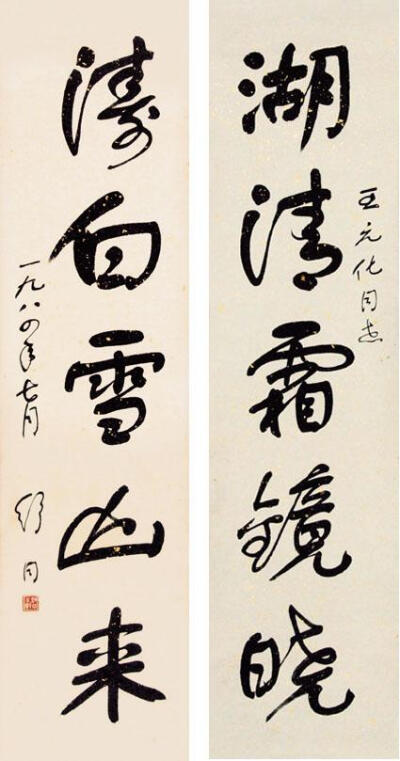 湖清霜鏡晓
王元化同志
涛白雪山来
一九八四年七月
舒同